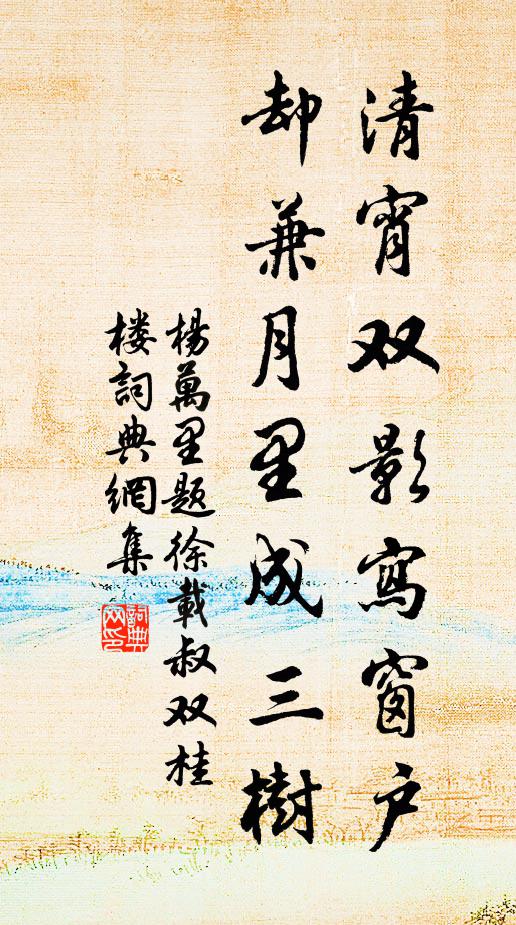 清宵双影寫窗户
却兼月里成三樹
楊萬里题徐載叔双桂
楼詞典網集
詞典网印